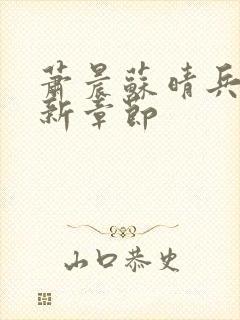 蕭晨蘇晴兵
新章節
山口恭史